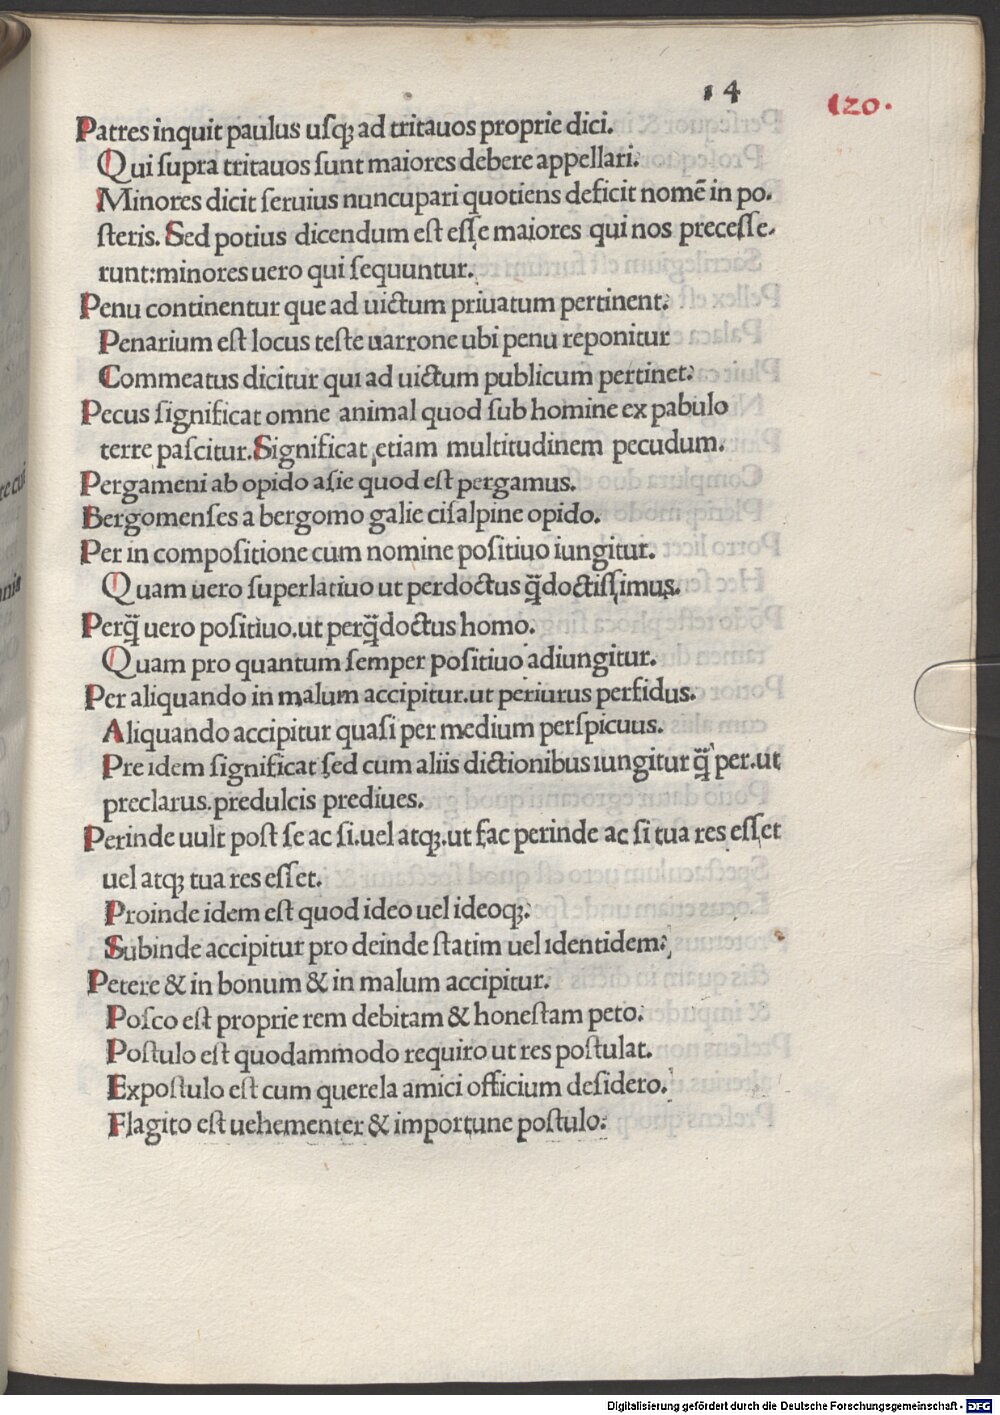 14
120.
Patres inquit paulus uſqꝫ ad tritauos proprie dici.
Qui ſupra tritauos ſunt maiores debere appellari.
Minores dicit ſeruius nuncupari quotiens deficit nomē in po-
ſteris. Sed potius dicendum eſt eſſe maiores qui nos preceſſe-
runt:minores uero qui ſequuntur.
Penu continentur que ad uictum priuatum pertinent.
Penarium eſt locus teſte uarrone ubi penu reponitur
Commeatus dicitur qui ad uictum publicum pertinet.
Pecus ſignificat omne animal quod ſub homine ex pabulo
terre paſcitur.Significat etiam multitudinem pecudum.
Pergameni ab opido aſie quod eſt pergamus.
Bergomenſes a bergomo galie ciſalpine opido.
Per in compoſitione cum nomine poſitiuo iungitur.
Quam uero ſuperlatiuo ut perdoctus q̄̃doctiſſimus.
Perq̄̃ uero poſitiuo.ut perq̄̃doctus homo.
Quam pro quantum ſemper poſitiuo adiungitur.
Per aliquando in malum accipitur.ut periurus perfidus.
Aliquando accipitur quaſi per medium perſpicuus.
Pre idem ſignificat ſed cum aliis dictionibus iungitur q̄̃ per.ut
preclarus.predulcis prediues.
Perinde uult poſt ſe ac ſi.uel atqꝫ.ut fac perinde ac ſi tua res eſſet
uel atqꝫ tua res eſſet.
Proinde idem eſt quod ideo uel ideoqꝫ.
Subinde accipitur pro deinde ſtatim uel identidem.
Petere & in bonum & in malum accipitur.
Poſco eſt proprie rem debitam & honeſtam peto.
Poſtulo eſt quodammodo requiro ut res poſtulat.
Expoſtulo eſt cum querela amici officium deſidero.
Flagito eſt uehementer & importune poſtulo.
Digitalisierung gefördert durch die Deutsche Forschungsgemeinschaft - DFG